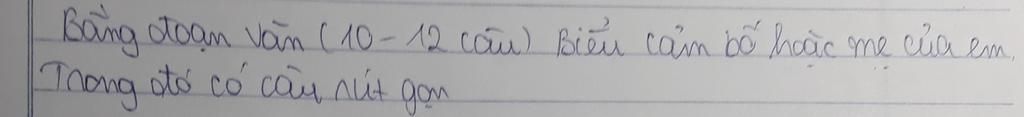 Bằng đoạn văn (10-12 câu) Biểu cảm bố hoặc mẹ của em.
Trong đó có câu rút gọn